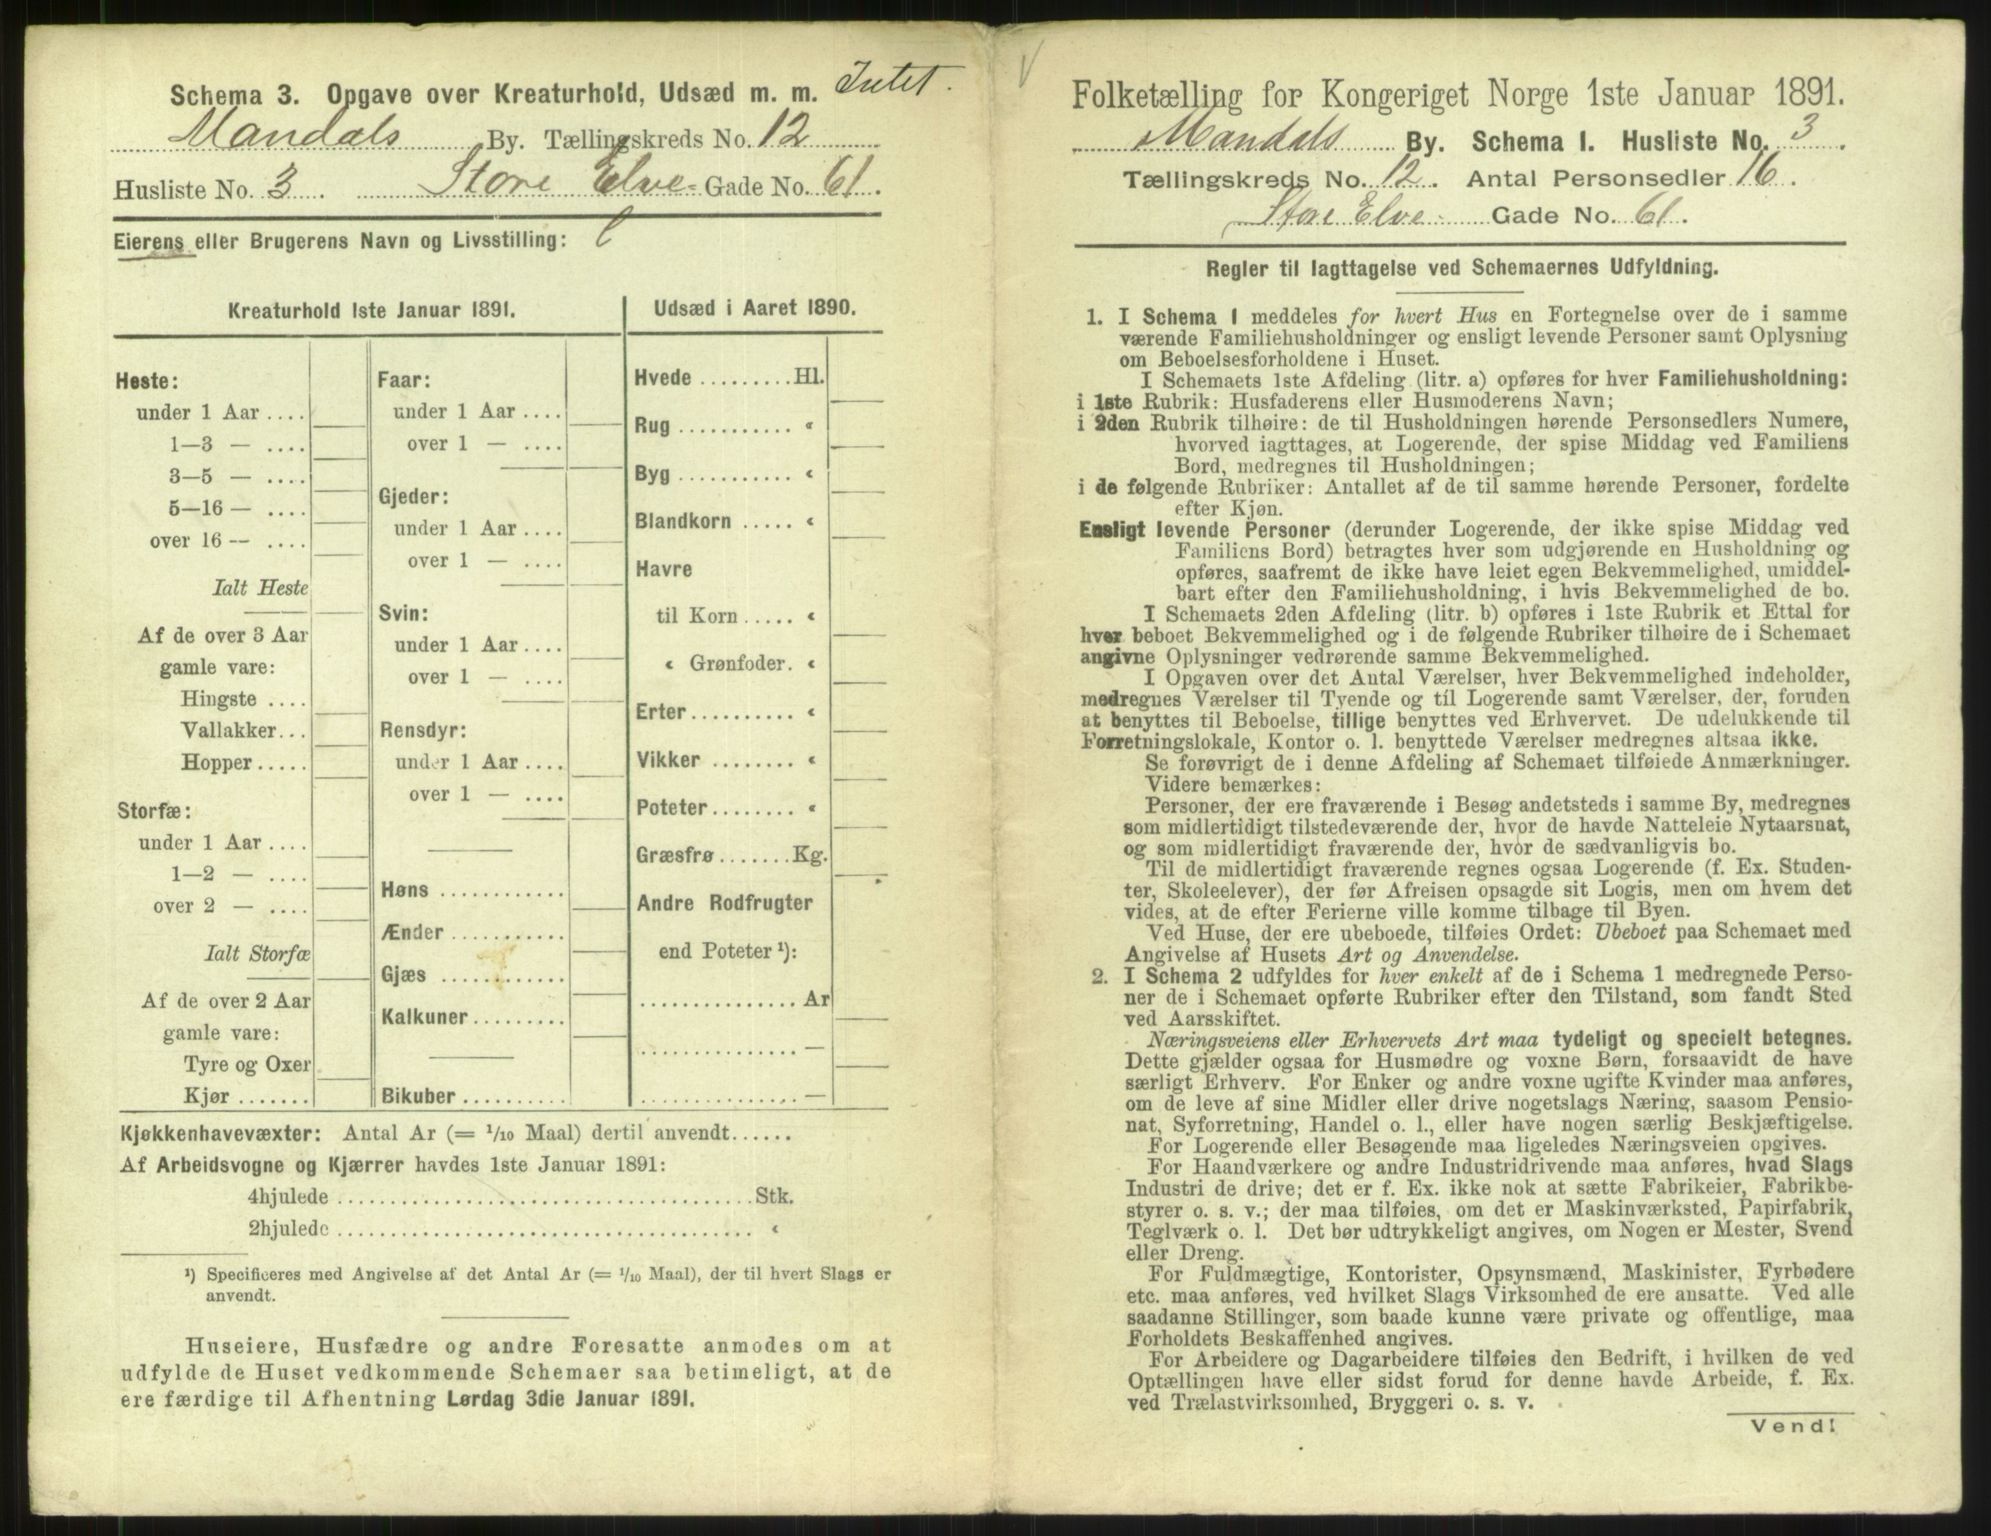 Schema 3. Opgave over Kreaturhold, Udsæd m. m. Intet.
Mandals By. Tællingskreds No. 12
Husliste No. 3 . Store Elve- Gade No. 61.
Eierens eller Brugerens Navn og Livsstilling:
Kreaturhold 1ste Januar 1891.
Heste:
under 1 Aar ....
1—3 — ....
3—5 — ....
5—16 — ....
over 16 -- ....
Ialt Heste
Af de over 3 Aar
gamle vare:
Hingste ....
Vallakker...
Hopper.....
Storfæ:
under 1 Aar ....
1—2 — ....
over 2 — ....
Ialt Storfæ
Af de over 2 Aar
gamle vare:
Tyre og Oxer
Kjør .......
Faar:
under 1 Aar ....
over 1 — ....
Gjeder:
under 1 Aar ....
over 1 — ....
Svin:
under 1 Aar ....
over 1 — ....
Rensdyr:
under 1 Aar ....
over 1 — ....
Høns ............
Ænder ...........
Gjæs ............
Kalkuner.........
Bikuber ..........
Udsæd i Aaret 1890.
Hvede .........Hl.
Rug ........... «
Byg ........... «
Blandkorn ..... «
Havre
til Korn ..... «
« Grønfoder. «
Erter.......... «
Vikker ........ «
Poteter........ «
Græsfrø.......Kg.
Andre Rodfrugter
end Poteter ¹):
............... Ar
............... —
............... —
Kjøkkenhavevæxter: Antal Ar (= 1/10 Maal) dertil anvendt......
Af Arbeidsvogne og Kjærrer havdes 1ste Januar 1891:
4hjulede ........................................Stk.
2hjulede ........................................ «
¹) Specificeres med Angivelse af det Antal Ar (= 1/10 Maal), der til hvert Slags er
anvendt.
Huseiere, Husfædre og andre Foresatte anmodes om at
udfylde de Huset vedkommende Schemaer saa betimeligt, at de
ere færdige til Afhentning Lørdag 3die Januar 1891.
Folketælling for Kongeriget Norge 1ste Januar 1891.
Mandals By. Schema I. Husliste No. 3 .
Tællingskreds No. 12 . Antal Personsedler 16 .
Store Elve- Gade No. 61.
Regler til Iagttagelse ved Schemaernes Udfyldning.
1. I Schema 1 meddeles for hvert Hus en Fortegnelse over de i samme
værende Familiehusholdninger og ensligt levende Personer samt Oplysning
om Beboelsesforholdene i Huset.
I Schemaets 1ste Afdeling (litr. a) opføres for hver Familiehusholdning:
i 1ste Rubrik: Husfaderens eller Husmoderens Navn;
i 2den Rubrik tilhøire: de til Husholdningen hørende Personsedlers Numere,
hvorved iagttages, at Logerende, der spise Middag ved Familiens
Bord, medregnes til Husholdningen;
i de følgende Rubriker: Antallet af de til samme hørende Personer, fordelte
efter Kjøn.
Ensligt levende Personer (derunder Logerende, der ikke spise Middag ved
Familiens Bord) betragtes hver som udgjørende en Husholdning og
opføres, saafremt de ikke have leiet egen Bekvemmelighed, umiddel-
bart efter den Familiehusholdning, i hvis Bekvemmelighed de bo.
I Schemaets 2den Afdeling (litr. b) opføres i 1ste Rubrik et Ettal for
hver beboet Bekvemmelighed og i de følgende Rubriker tilhøire de i Schemaet
angivne Oplysninger vedrørende samme Bekvemmelighed.
I Opgaven over det Antal Værelser, hver Bekvemmelighed indeholder,
medregnes Værelser til Tyende og til Logerende samt Værelser, der, foruden
at benyttes til Beboelse, tillige benyttes ved Erhvervet. De udelukkende til
Forretningslokale, Kontor o. l. benyttede Værelser medregnes altsaa ikke.
Se forøvrigt de i denne Afdeling af Schemaet tilføiede Anmærkninger.
Videre bemærkes:
Personer, der ere fraværende i Besøg andetsteds i samme By, medregnes
som midlertidigt tilstedeværende der, hvor de havde Natteleie Nytaarsnat,
og som midlertidigt fraværende der, hvor de sædvanligvis bo.
Til de midlertidigt fraværende regnes ogsaa Logerende (f. Ex. Studen-
ter, Skoleelever), der før Afreisen opsagde sit Logis, men om hvem det
vides, at de efter Ferierne ville komme tilbage til Byen.
Ved Huse, der ere ubeboede, tilføies Ordet: Ubeboet paa Schemaet med
Angivelse af Husets Art og Anvendelse.
2. I Schema 2 udfyldes for hver enkelt af de i Schema 1 medregnede Perso-
ner de i Schemaet opførte Rubriker efter den Tilstand, som fandt Sted
ved Aarsskiftet.
Næringsveiens eller Erhvervets Art maa tydeligt og specielt betegnes.
Dette gjælder ogsaa for Husmødre og voxne Børn, forsaavidt de have
særligt Erhverv. For Enker og andre voxne ugifte Kvinder maa anføres,
om de leve af sine Midler eller drive nogetslags Næring, saasom Pensio-
nat, Syforretning, Handel o. l., eller have nogen særlig Beskjæftigelse.
For Logerende eller Besøgende maa ligeledes Næringsveien opgives.
For Haandværkere og andre Industridrivende maa anføres, hvad Slags
Industri de drive; det er f. Ex. ikke nok at sætte Fabrikeier, Fabrikbe-
styrer o. s. v.; der maa tilføies, om det er Maskinværksted, Papirfabrik,
Teglværk o. l. Det bør udtrykkeligt angives, om Nogen er Mester, Svend
eller Dreng.
For Fuldmægtige, Kontorister, Opsynsmænd, Maskinister, Fyrbødere
etc. maa anføres, ved hvilket Slags Virksomhed de ere ansatte. Ved alle
saadanne Stillinger, som baade kunne være private og offentlige, maa
Forholdets Beskaffenhed angives.
For Arbeidere og Dagarbeidere tilføies den Bedrift, i hvilken de ved
Optællingen have eller sidst forud for denne havde Arbeide, f. Ex.
ved Trælastvirksomhed, Bryggeri o. s. v.
Vend!